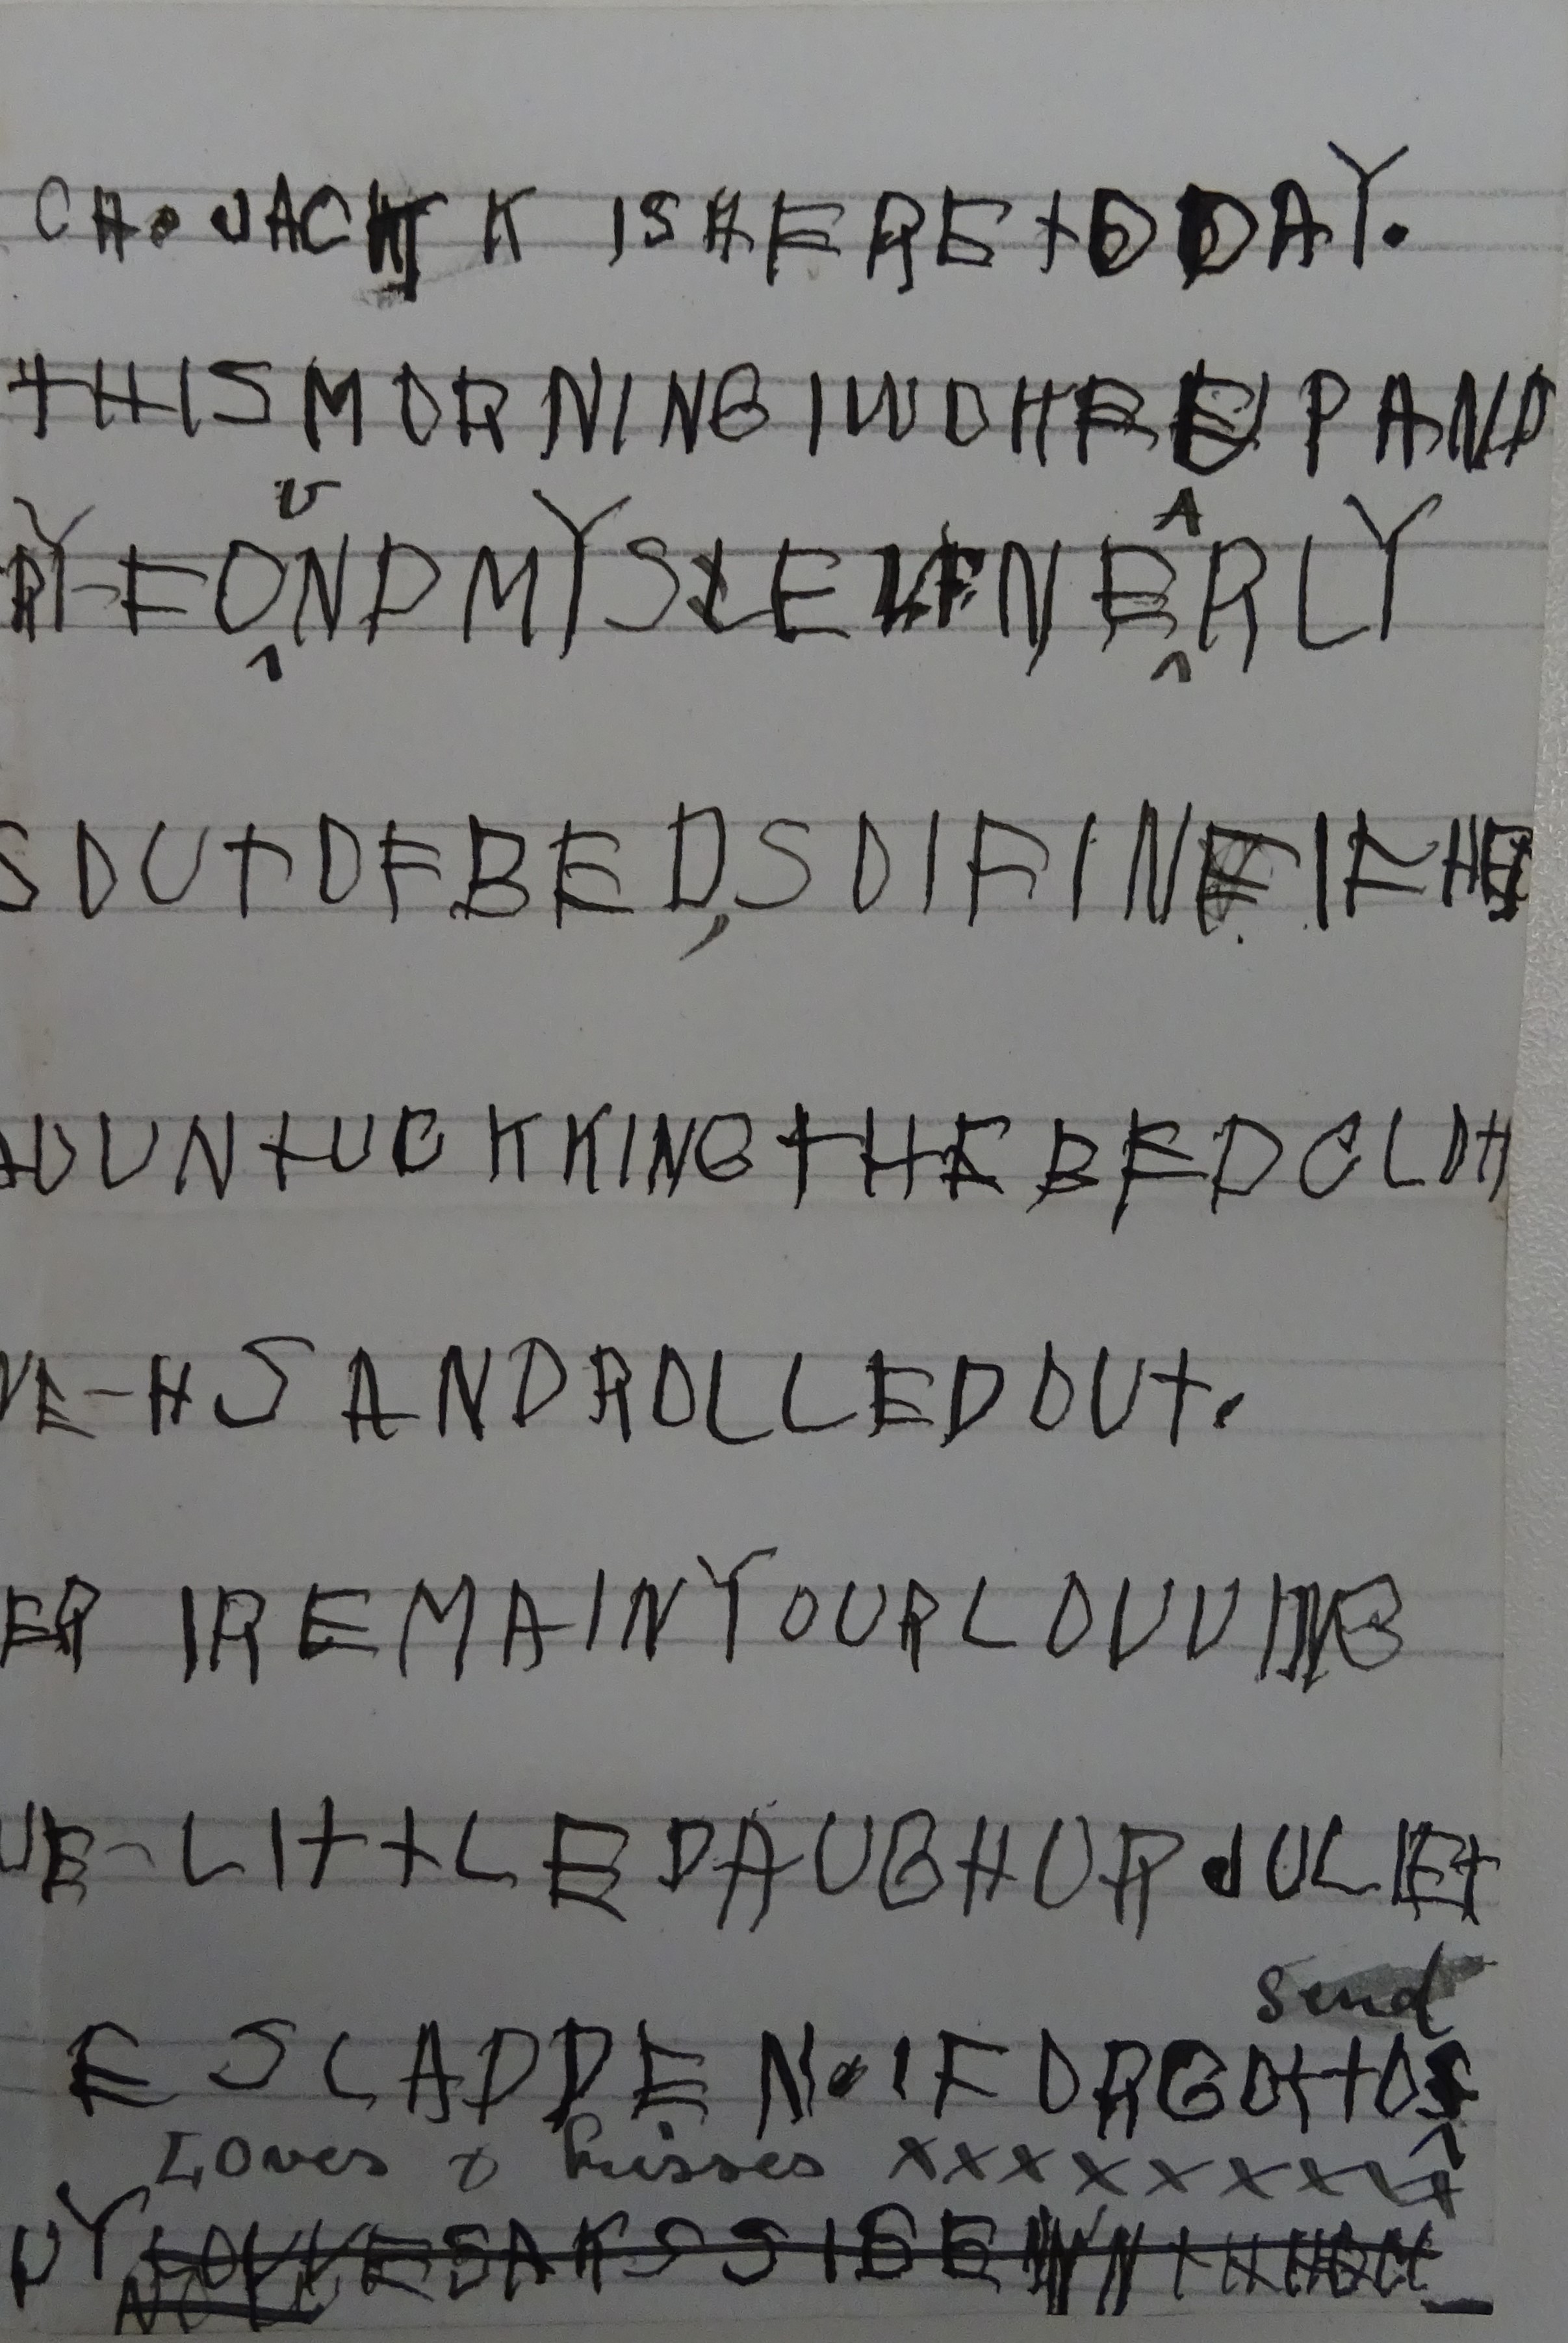 CH. JACK IS HERE TODAY.
THIS MORNING I WOHRE UP AND
U A
RY-FOND MYSLELF NERLY
S OUT OF BED, SO IF IN IF HE
UNTUCKKING THE BEDCLOH
VE-HS AND ROLLED OUT.
ER I REMAIN YOUR LOVVING
VE-LITTLE DAUGHUR JULIET
send
E SLADDEN. I FORGOT TO
Loves & kisses xxxxxxxx